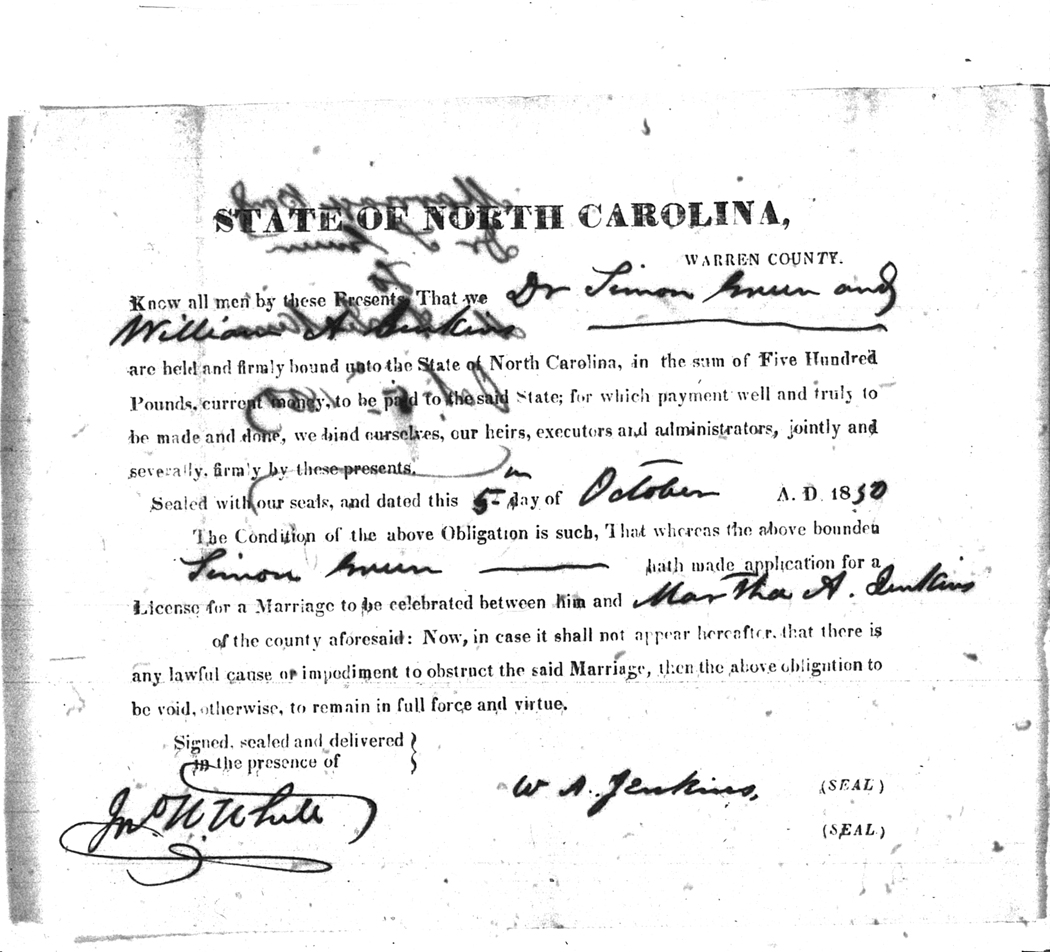 STATE OF NORTH CAROLINA,
WARREN COUNTY.
Know all men by these Presents, That we Dr Simon Green and
William A Jenkins
are held and firmly bound unto the State of North Carolina, in the sum of Five Hundred
Pounds, current money, to be paid to the said State; for which payment well and truly to
be made and done, we bind ourselves, our heirs, executors and administrators, jointly and
severally, firmly by these presents.
Sealed with our seals, and dated this 5th day of October A. D. 1850
The Condition of the above Obligation is such, That whereas the above bounden
Simon Green hath made application for a
License for a Marriage to be celebrated between him and Martha A. Jenkins
of the county aforesaid: Now, in case it shall not appear hereafter, that there is
any lawful cause or impediment to obstruct the said Marriage, then the above obligation to
be void, otherwise, to remain in full force and virtue.
Signed, sealed and delivered
in the presence of
W A. Jenkins, (SEAL)
Jno W. White
(SEAL)